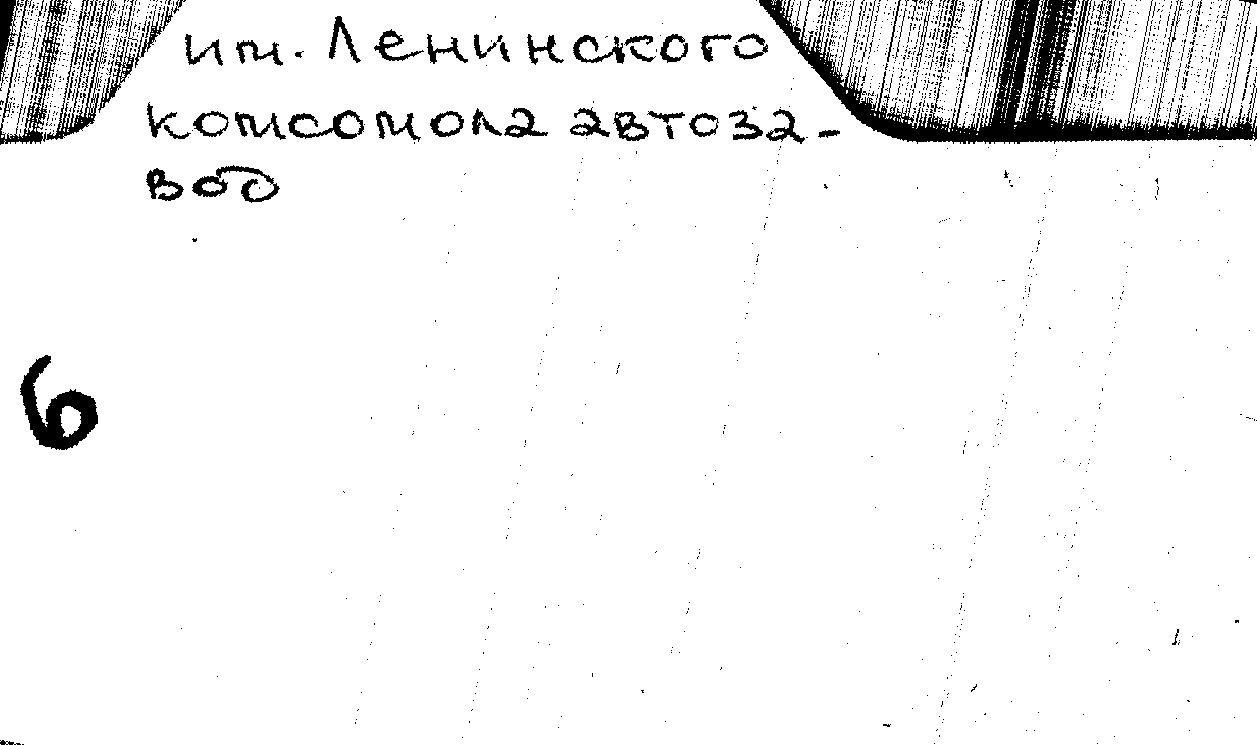 им. Ленинского
комсомола автоза-
вод
6